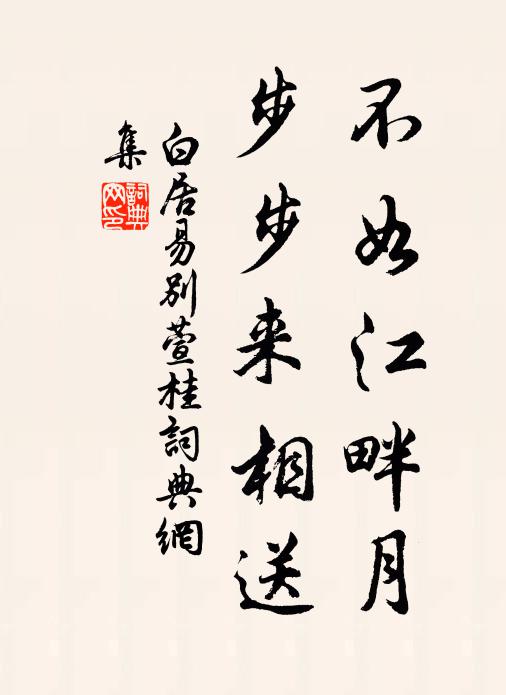 不如江畔月
步步来相送
白居易别萱桂詞典網
集
詞典网印